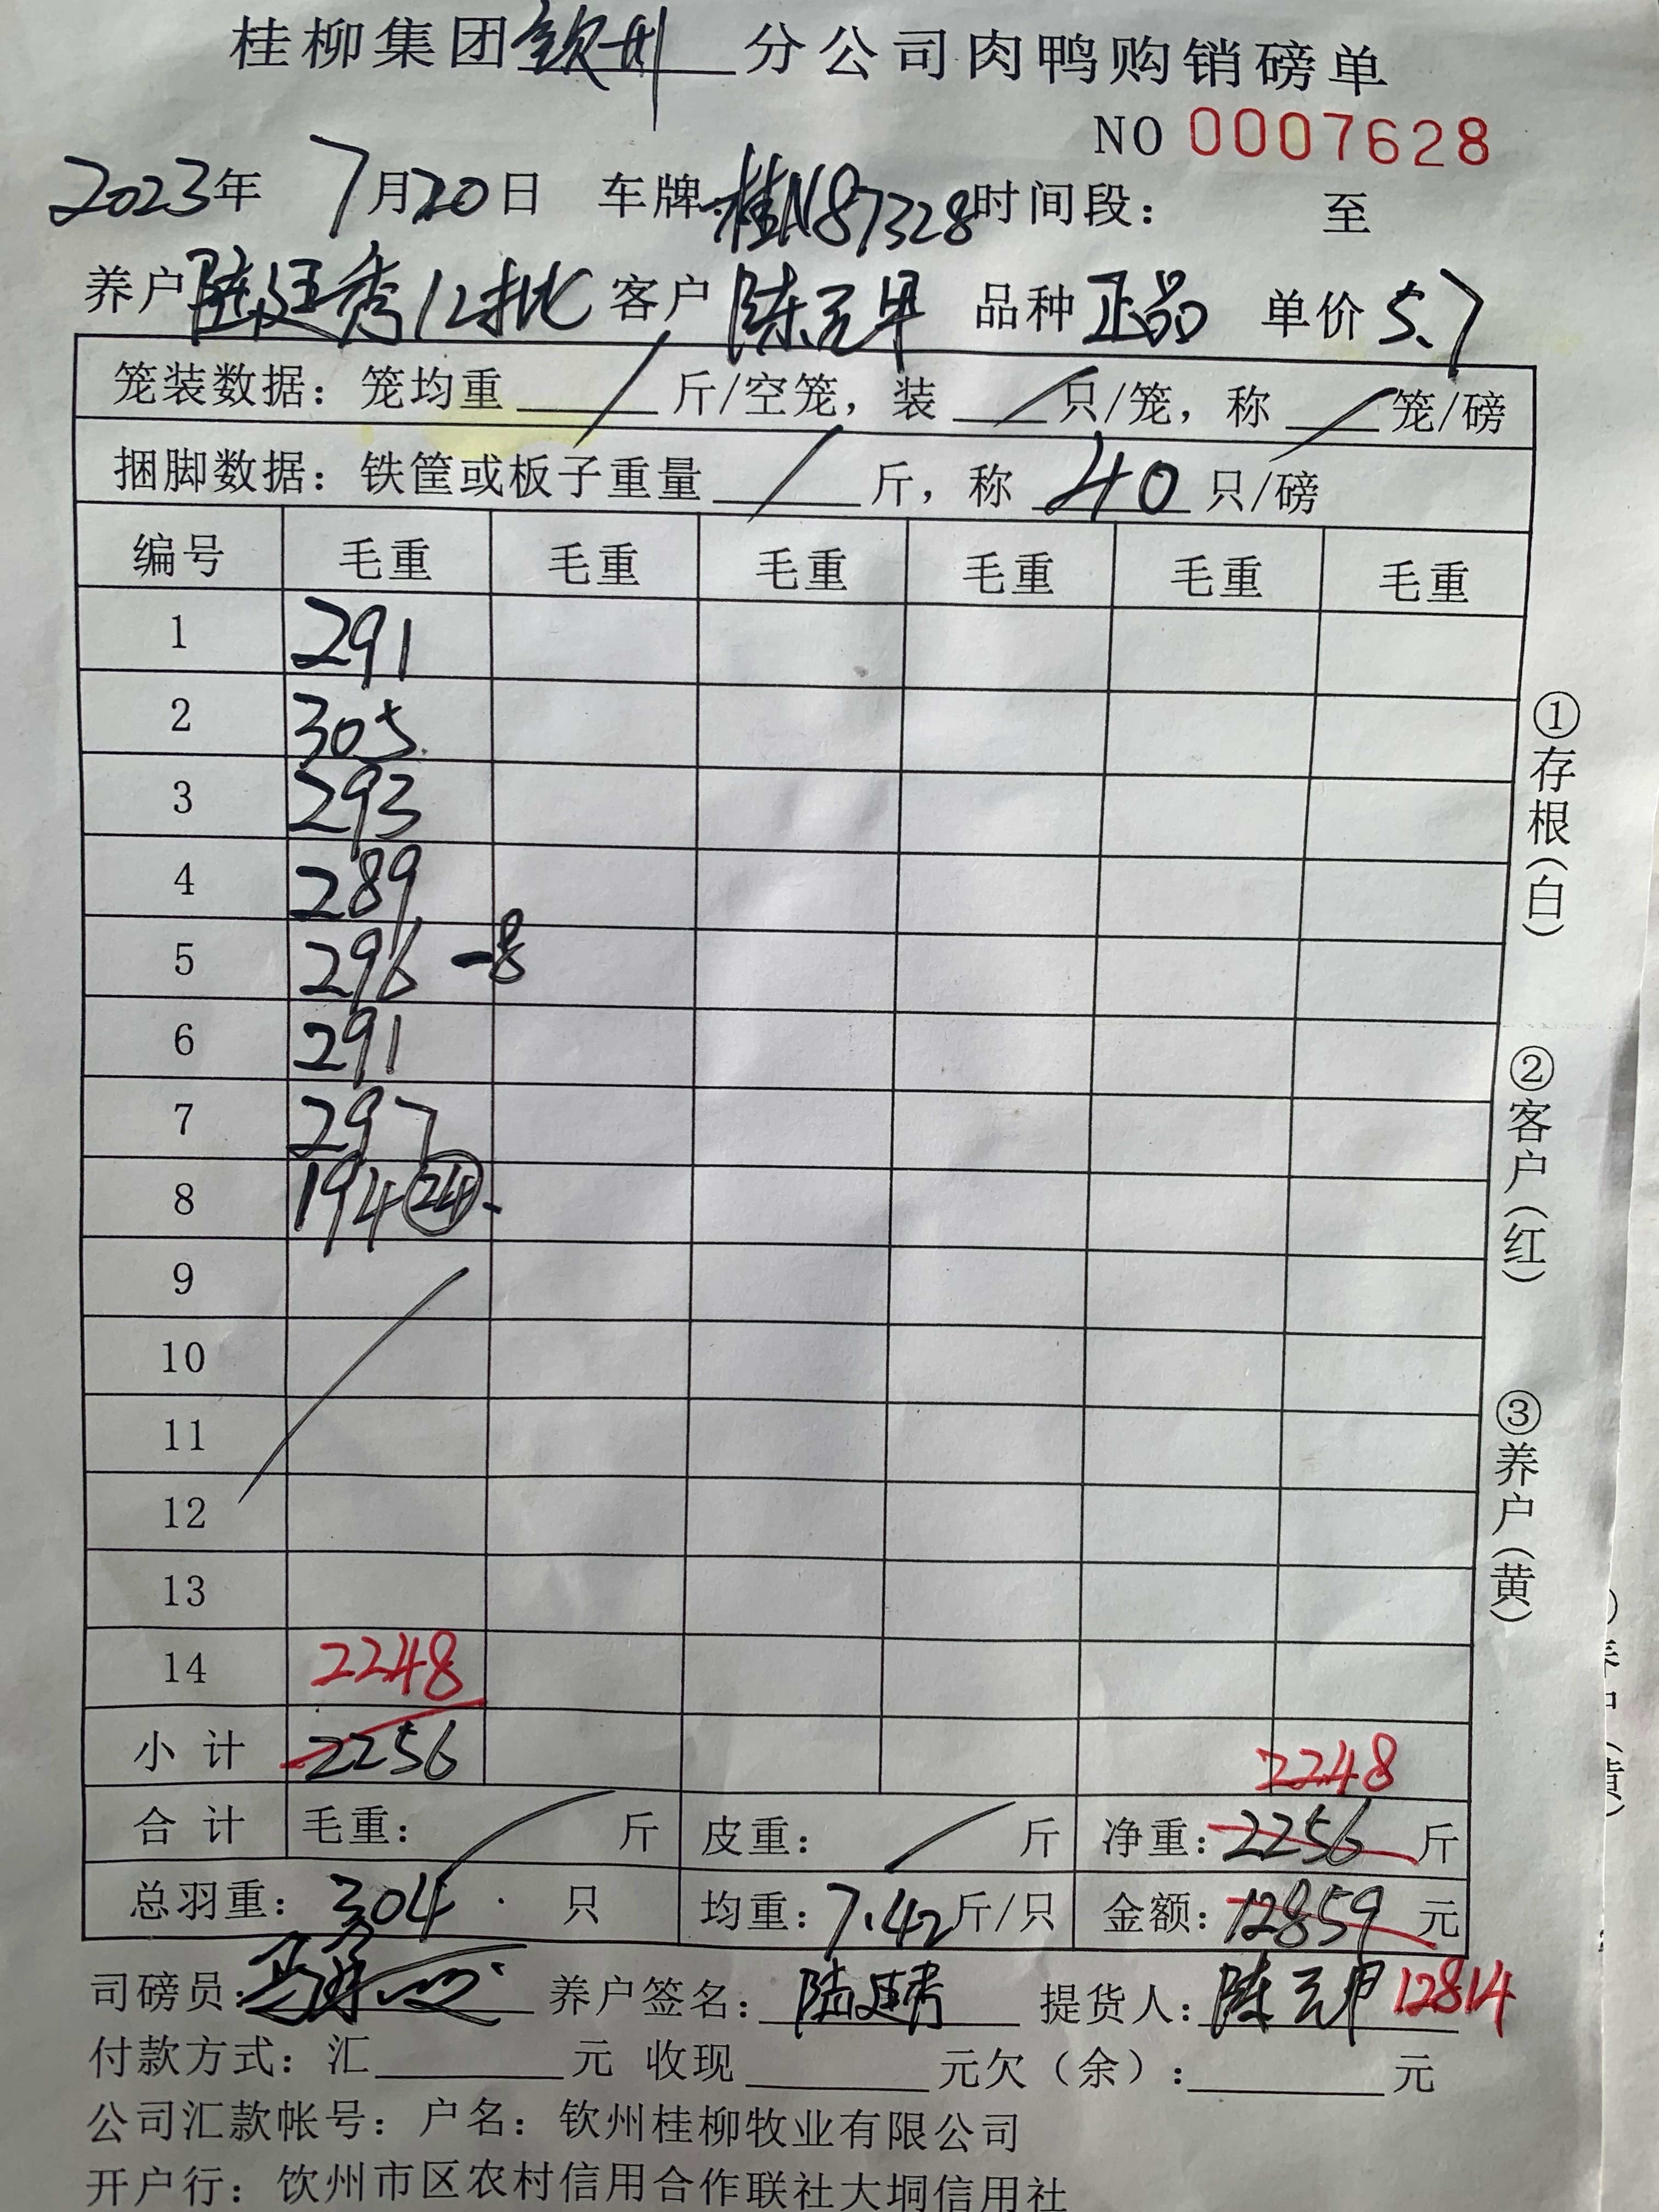 桂柳集团钦州分公司肉鸭购销磅单
NO 0007628
2023年 7月20日 车牌:桂N87328时间段: 至
养户陆廷秀12批 客户陈元甲 品种正品 单价5.7
笼装数据: 笼均重 / 斤/空笼, 装 / 只/笼, 称 / 笼/磅
捆脚数据: 铁筐或板子重量 / 斤, 称 40 只/磅
编号 毛重 毛重 毛重 毛重 毛重 毛重
1 291
2 305
3 293
4 289
5 296 -8
6 291
7 297
8 194 24
9
10
11
12
13
14 2248
小计 2256 2248
合计 毛重: / 斤 皮重: / 斤 净重: 2256 斤
总羽重: 304 只 均重: 7.42斤/只 金额: 12859 元
司磅员: 养户签名: 陆廷秀 提货人: 陈元甲 12814
付款方式: 汇 元 收现 元欠(余): 元
公司汇款帐号: 户名: 钦州桂柳牧业有限公司
开户行: 钦州市区农村信用合作联社大垌信用社
①存根(白)
②客户(红)
③养户(黄)